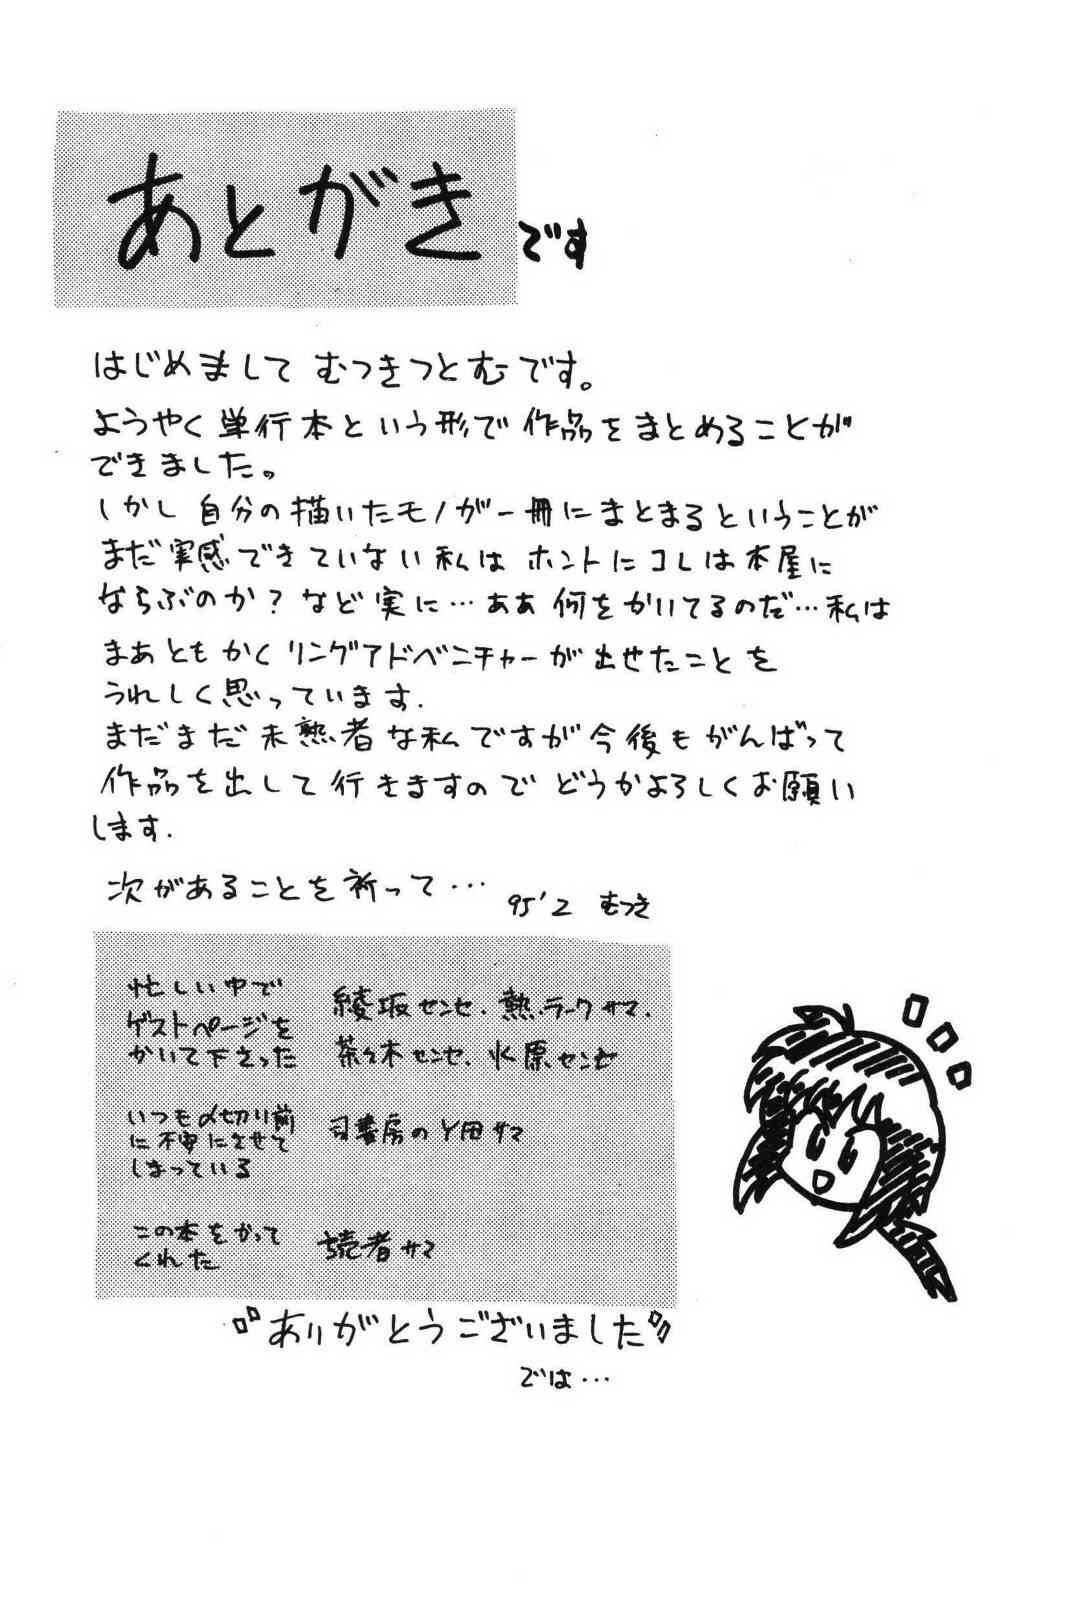 あとがきです
はじめまして むつきつとむです。
ようやく単行本という形で作品をまとめることが
できました。
しかし自分の描いたモノが一冊にまとまるということが
まだ実感できていない私は ホントにコレは本屋に
ならぶのか？など実に…ああ何をかいてるのだ…私は
まあともかくリングアドベンチャーが出せたことを
うれしく思っています.
まだまだ未熟者な私ですが今後もがんばって
作品を出して行きますので どうかよろしくお願い
します.
次があることを祈って…
95'2 むつき
忙しい中で
ゲストページを
かいて下さった
綾坂センセ、熱.ラークサマ、
茶々木センセ、水原センセ
いつも〆切り前
に不安にさせて
しまっている
司書房のY田サマ
この本をかって
くれた
読者サマ
ありがとうございました
では…